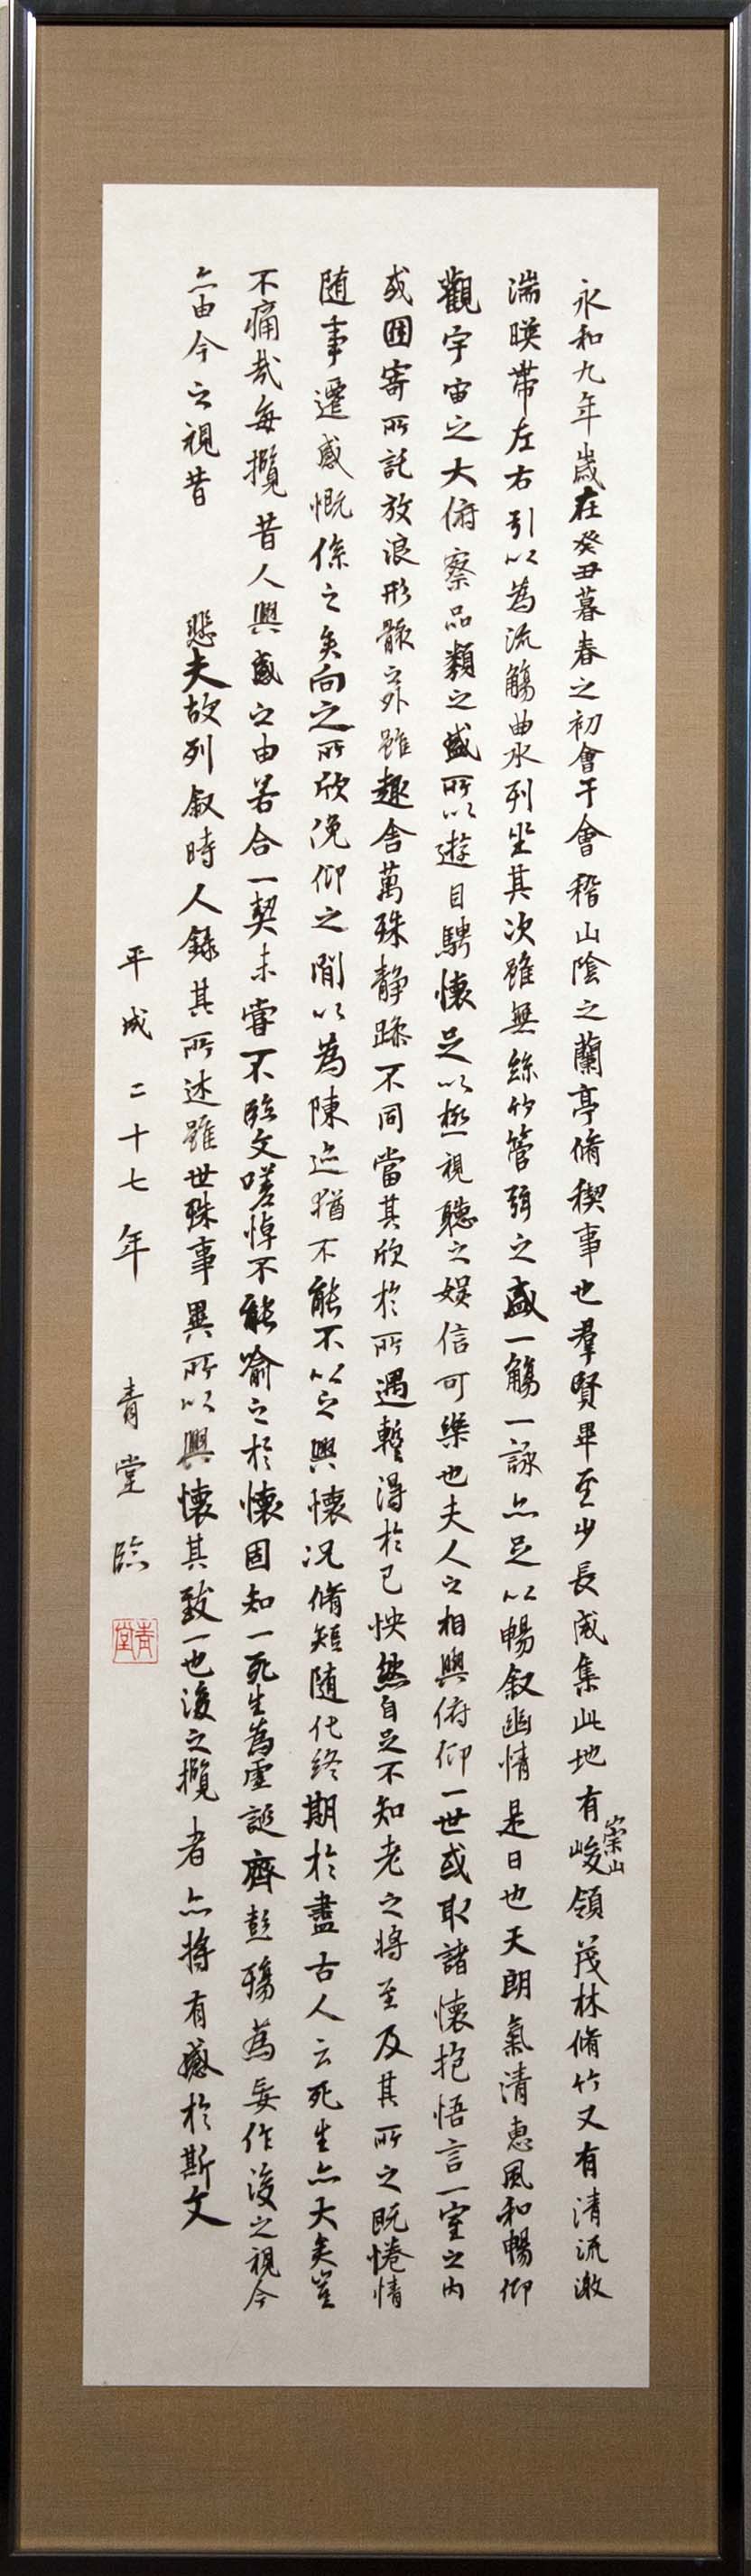 永和九年歳在癸丑暮春之初會于會稽山陰之蘭亭脩稧事也羣賢畢至少長咸集此地有崇山峻領茂林脩竹又有清流激
湍暎帶左右引以為流觴曲水列坐其次雖無絲竹管弦之盛一觴一詠亦足以暢叙幽情是日也天朗氣清惠風和暢仰
觀宇宙之大俯察品類之盛所以遊目騁懐足以極視聽之娯信可樂也夫人之相與俯仰一世或取諸懐抱悟言一室之内
或因寄所託放浪形骸之外雖趣舎萬殊静躁不同當其欣於所遇蹔得於己怏然自足不知老之將至及其所之既惓情
随事遷感慨係之矣向之所欣俛仰之閒以為陳迹猶不能不以之興懐況脩短随化終期於盡古人云死生亦大矣豈
不痛哉每攬昔人興感之由若合一契未甞不臨文嗟悼不能喩之於懐固知一死生為虚誕齊彭殤為妄作後之視今
亦由今之視昔　悲夫故列叙時人録其所述雖世殊事異所以興懐其致一也後之攬者亦將有感於斯文
平成二十七年　青堂臨
青堂